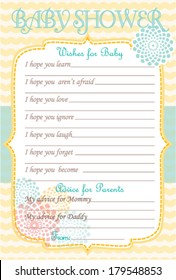 BABY SHOWER
Wishes for Baby
I hope you learn
I hope you aren't afraid
I hope you love
I hope you ignore
I hope you laugh
I hope you forget
I hope you become
Advice for Parents
My advice for Mommy
My advice for Daddy
From
shutterstock.com · 179548853